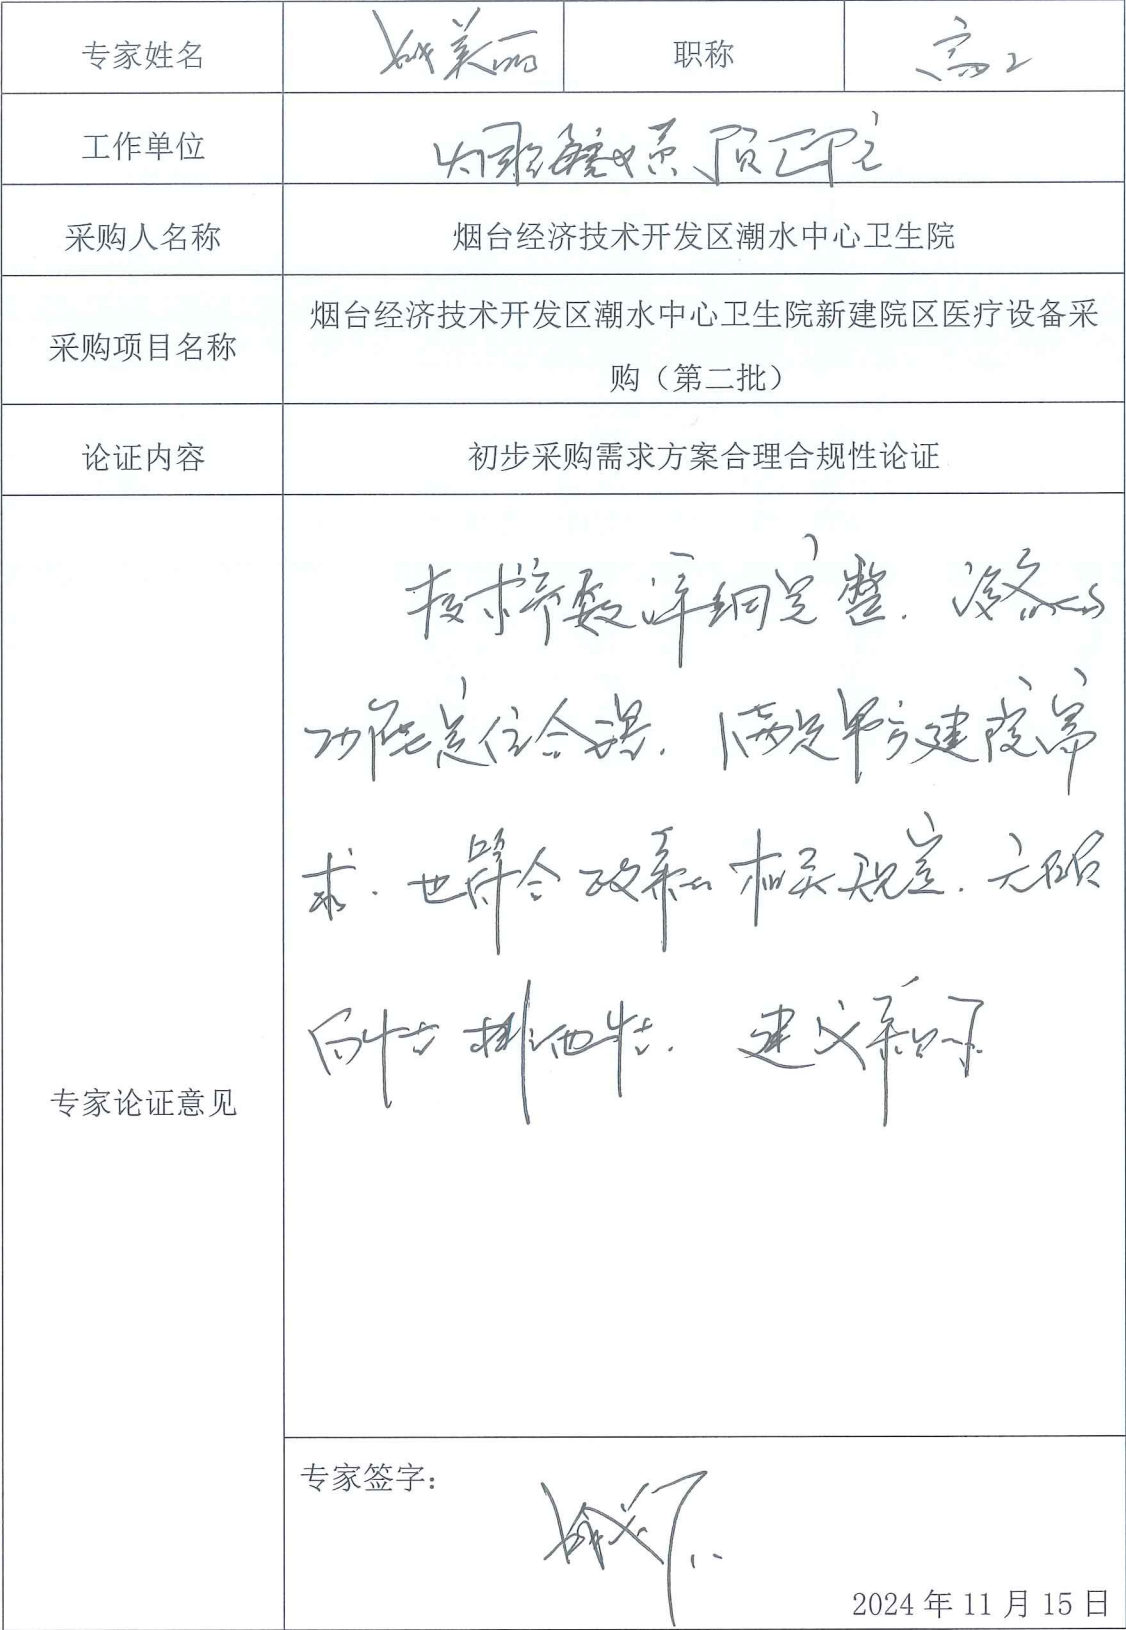 专家姓名 美丽 职称 高工
工作单位
采购人名称 烟台经济技术开发区潮水中心卫生院
采购项目名称 烟台经济技术开发区潮水中心卫生院新建院区医疗设备采
购（第二批）
论证内容 初步采购需求方案合理合规性论证
专家论证意见
技术参数详细完整. 设备的
功能定位合理. 满足甲方建院需
求. 也符合政策的相关规定. 无倾
向性排他性. 建议采购
专家签字：
2024 年 11 月 15 日